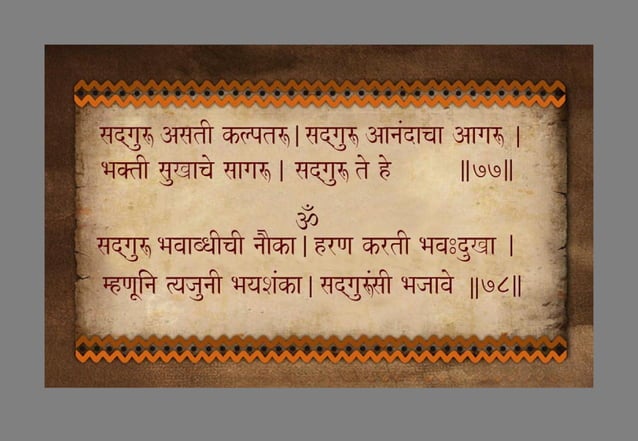 सद्गुरु असती कल्पतरू | सद्गुरु आनंदाचा आगरू |
भक्ती सुखाचे सागरू | सद्गुरु ते हे ||७७||
ॐ
सद्गुरु भवाब्धीची नौका | हरण करती भवःदुखा |
म्हणूनि त्यजुनी भयशंका | सद्गुरुंसी भजावे ||७८||